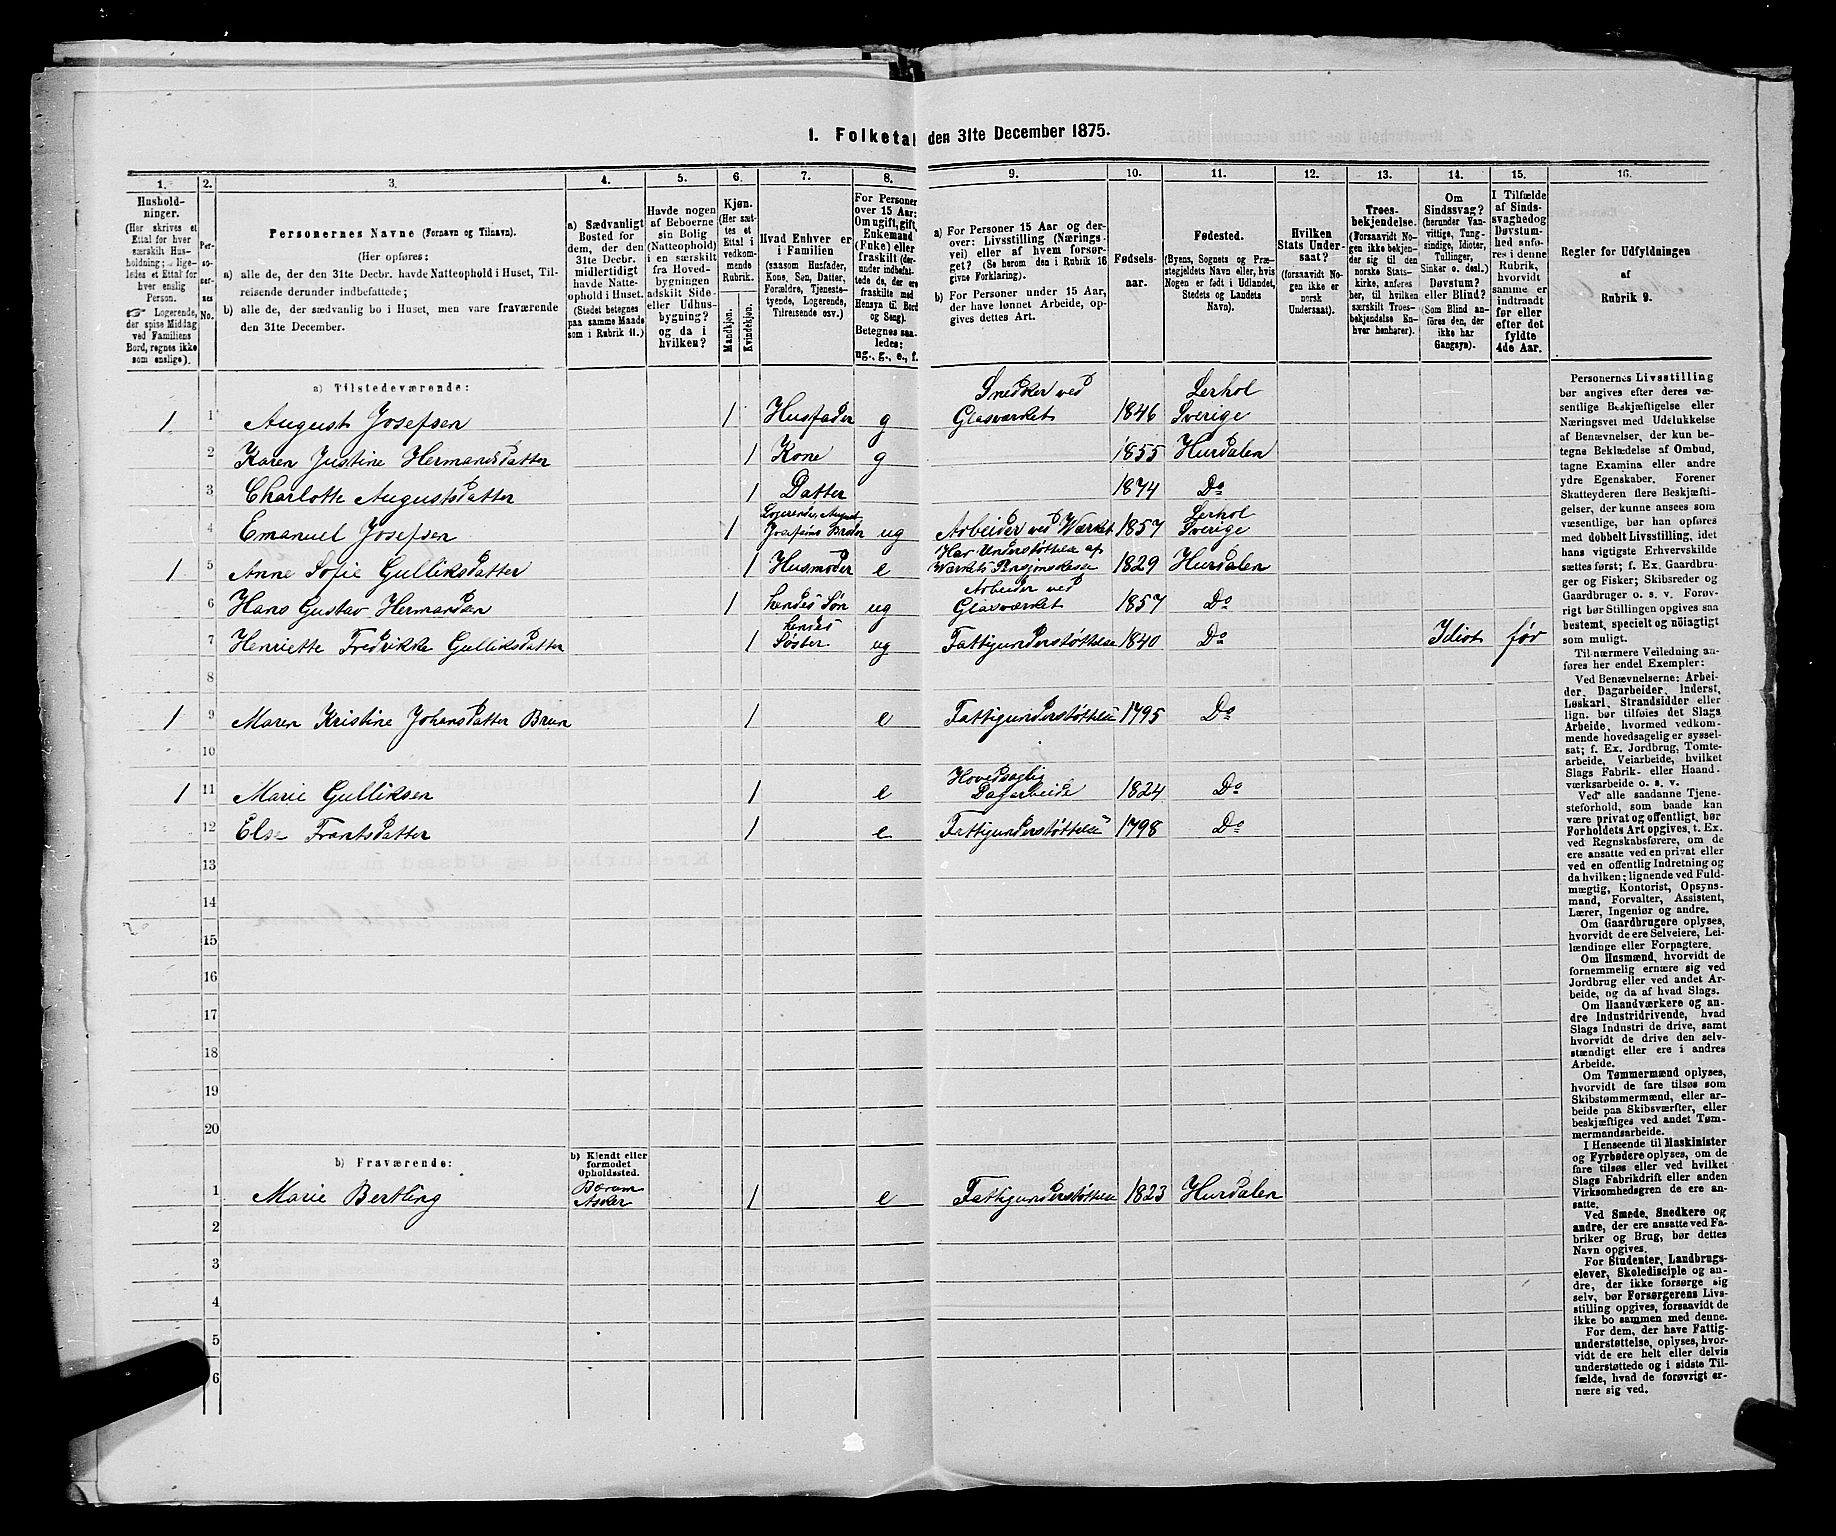 1. Folketal den 31te December 1875.
1. 2. 3. 4. 5. 6. 7. 8. 9. 10. 11. 12. 13. 14. 15. 16.
Hushold-
ninger.
(Her skrives et
Ettal for hver
særskilt Hus-
holdning; lige-
ledes et Ettal for
hver enslig
Person.
☞ Logerende,
der spise Middag
ved Familiens
Bord, regnes ikke
som enslige).
Per-
so-
ner-
nes
No.
Personernes Navne (Fornavn og Tilnavn).
(Her opføres:
a) alle de, der den 31te Decbr. havde Natteophold i Huset, Til-
reisende derunder indbefattede;
b) alle de, der sædvanlig bo i Huset, men vare fraværende
den 31te December.
a) Sædvanligt
Bosted for
dem, der den
31te Decbr.
midlertidigt
havde Natte-
ophold i Huset.
(Stedet betegnes
paa samme Maade
som i Rubrik 11.)
Havde nogen
af Beboerne
sin Bolig
(Natteophold)
i en særskilt
fra Hoved-
bygningen
adskilt Side-
eller Udhus-
bygning?
og da i
hvilken?
Kjøn.
(Her sæt-
tes et
Ettal i
vedkom-
mende
Rubrik.
Mandkjøn.
Kvindekjøn.
Hvad Enhver er
i Familien
(saasom Husfader,
Kone, Søn, Datter,
Forældre, Tjeneste-
tyende, Logerende,
Tilreisende osv.)
For Personer
over 15 Aar:
Om ugift, gift,
Enkemand
(Enke) eller
fraskilt (der-
under indbefat-
tede de, der ere
fraskilte med
Hensyn til Bord
og Seng).
Betegnes saa-
ledes:
ug., g., e., f.
a) For Personer 15 Aar og der-
over: Livsstilling (Nærings-
vei) eller af hvem forsør-
get? (Se herom den i Rubrik 16
givne Forklaring).
b) For Personer under 15 Aar,
der have lønnet Arbeide, op-
gives dettes Art.
Fødsels-
aar.
Fødested.
(Byens, Sognets og Præ-
stegjeldets Navn eller, hvis
Nogen er født i Udlandet,
Stedets og Landets
Navn).
Hvilken
Stats Under-
saat?
(forsaavidt No-
gen ikke er
norsk
Undersaat).
Troes-
bekjendelse.
(Forsaavidt No-
gen ikke bekjen-
der sig til den
norske Stats-
kirke, anføres
her, til hvilken
særskilt Troes-
bekjendelse En-
hver henhører).
Om
Sindssvag?
(herunder Van-
vittige, Tung-
sindige, Idioter,
Tullinger,
Sinker o. desl.)
Døvstum?
eller Blind?
(Som Blind an-
føres den, der
ikke har
Gangsyn).
I Tilfælde
af Sinds-
svaghed og
Døvstum-
hed anfø-
res i denne
Rubrik,
hvorvidt
samme er
indtraadt
før eller
efter det
fyldte
4de Aar.
Regler for Udfyldningen
af
Rubrik 9.
a) Tilstedeværende:
1 1 August Josefsen 1 Husfader g Snedker ved Glasværket 1846 Lerhol Sverige
2 Karen Justine Hermansdatter 1 Kone g 1855 Hurdalen
3 Charlotte Augustsdatter 1 Datter 1874 Do
4 Emanuel Josefsen 1 Logerende, August Josefsens Broder ug Arbeider ved Værket 1857 Lerhol Sverige
1 5 Anne Sofie Gulliksdatter 1 Husmoder e Har Understøttelse af Værkets Pensjonskasse 1829 Hurdalen
6 Hans Gustav Hermansen 1 hendes Søn ug Arbeider ved Glasværket 1857 Do
7 Henriette Fredrikke Gulliksdatter 1 hendes Søster ug Fattigunderstøttelse 1840 Do Idiot før
8
1 9 Maren Kristine Johansdatter Brun 1 e Fattigunderstøttelse 1795 Do
10
1 11 Marie Gulliksen 1 e Hovedsaglig Dagarbeide 1824 Do
12 Else Frantsdatter 1 e Fattigunderstøttelse 1798 Do
13
14
15
16
17
18
19
20
b) Fraværende:
b) Kjendt eller
formodet
Opholdssted.
1 Marie Bertling Bærum Asker 1 e Fattigunderstøttelse 1823 Hurdalen
2
3
4
5
6
Personernes Livsstilling
bør angives efter deres væ-
sentlige Beskjæftigelse eller
Næringsvei med Udelukkelse
af Benævnelser, der kun be-
tegne Beklædelse af Ombud,
tagne Examina eller andre
ydre Egenskaber. Forener
Skatteyderen flere Beskjæfti-
gelser, der kunne ansees som
væsentlige, bør han opføres
med dobbelt Livsstilling, idet
hans vigtigste Erhvervskilde
sættes først; f. Ex. Gaardbru-
ger og Fisker; Skibsreder og
Gaardbruger o. s. v. Forøv-
rigt bør Stillingen opgives saa
bestemt, specielt og nöiagtigt
som muligt.
Til nærmere Veiledning an-
føres her endel Exempler:
Ved Benævnelserne: Arbei-
der, Dagarbeider, Inderst,
Løskarl, Strandsidder eller
lign. bør tilføies det Slags
Arbeide, hvormed vedkom-
mende hovedsagelig er syssel-
sat; f. Ex. Jordbrug, Tomte-
arbeide, Veiarbeide, hvilket
Slags Fabrik- eller Haand-
værksarbeide o. s. v.
Ved alle saadanne Tjene-
steforhold, som baade kan
være privat og offentligt, bør
Forholdets Art opgives, t. Ex.
ved Regnskabsførere, om de
ere ansatte ved en privat eller
ved en offentlig Indretning og
da hvilken; lignende ved Fuld-
mægtig, Kontorist, Opsyns-
mand, Forvalter, Assistent,
Lærer, Ingeniør og andre.
Om Gaardbrugere oplyses,
hvorvidt de ere Selveiere, Lei-
lændinge eller Forpagtere.
Om Husmænd, hvorvidt de
fornemmelig ernære sig ved
Jordbrug eller ved andet Ar-
beide, og da af hvad Slags.
Om Haandværkere og an-
dre Industridrivende, hvad
Slags Industri de drive, samt
hvorvidt de drive den selv-
stændigt eller ere i andres
Arbeide.
Om Tømmermænd oplyses,
hvorvidt de fare tilsøs som
Skibstømmermænd, eller ar-
beide paa Skibsværfter, eller
beskjæftiges ved andet Tøm-
mermandsarbeide.
I Henseende til Maskinister
og Fyrbødere oplyses, om de
fare tilsøs eller ved hvilket
Slags Fabrikdrift eller anden
Virksomhedsgren de ere an-
satte.
Ved Smede, Snedkere og
andre, der ere ansatte ved Fa-
briker og Brug, bør dettes
Navn opgives.
For Studenter, Landbrugs-
elever, Skoledisciple og an-
dre, der ikke forsørge sig
selv, bør Forsørgerens Livs-
stilling opgives, forsaavidt de
ikke bo sammen med denne.
For dem, der have Fattig-
understøttelse, oplyses, hvor-
vidt de ere helt eller delvis
understøttede og i sidste Til-
fælde, hvad de forøvrigt er-
nære sig ved.